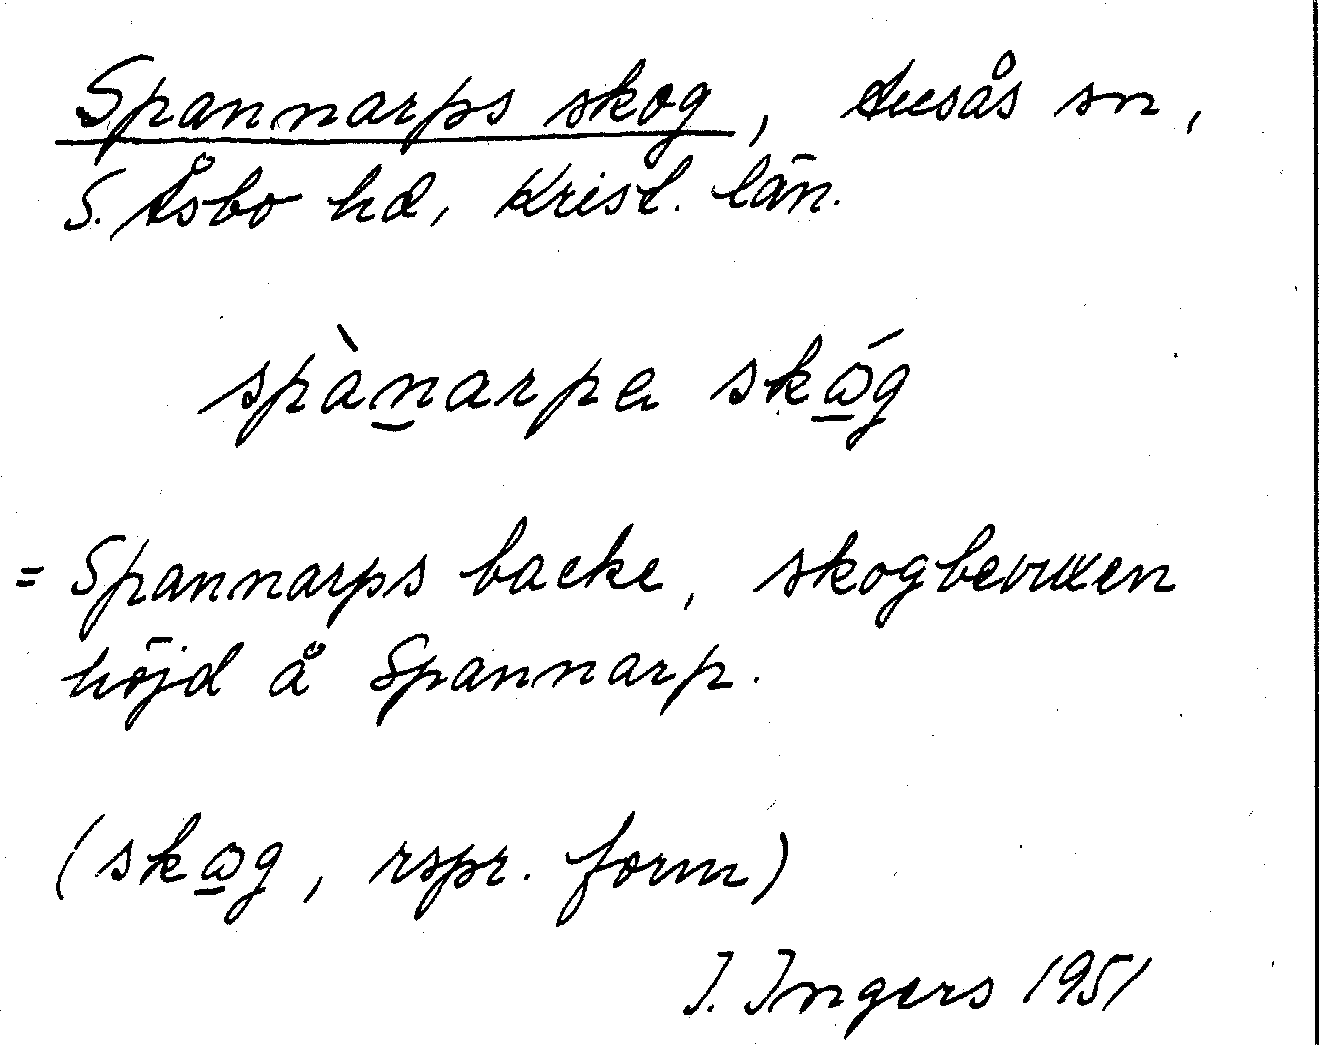 Spannarps skog, Ausås sn,
S. Åsbo hd, Krist. län.
spànarpa skǿg
= Spannarps backe, skogbevuxen
höjd å Spannarp.
(skøg, rspr. form)
I. Ingers 1951